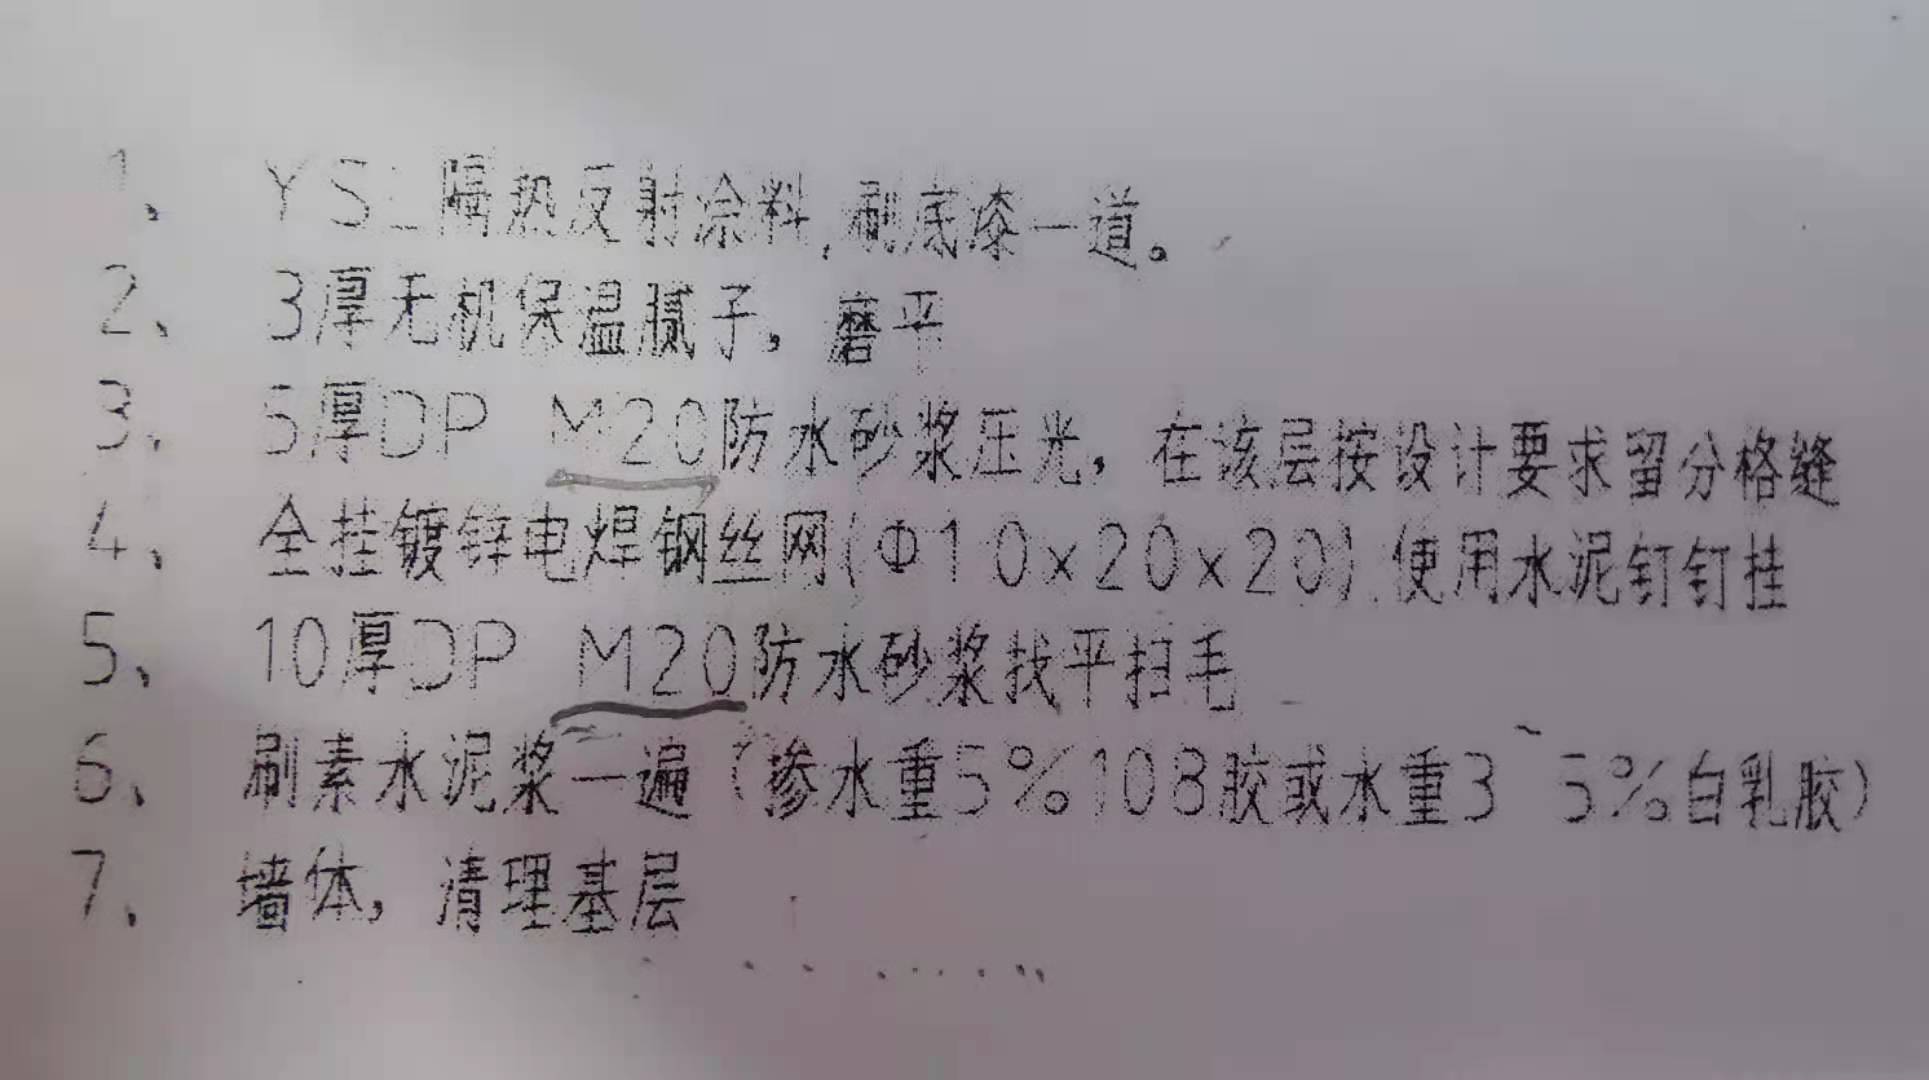 1、 YSL隔热反射涂料,刷底漆一道。
2、 3厚无机保温腻子,磨平
3、 5厚DP M20防水砂浆压光,在该层按设计要求留分格缝
4、 全挂镀锌电焊钢丝网(Φ1.0×20×20).使用水泥钉钉挂
5、 10厚DP M20防水砂浆找平扫毛
6、 刷素水泥浆一遍(掺水重5%108胶或水重3~5%白乳胶)
7、 墙体,清理基层